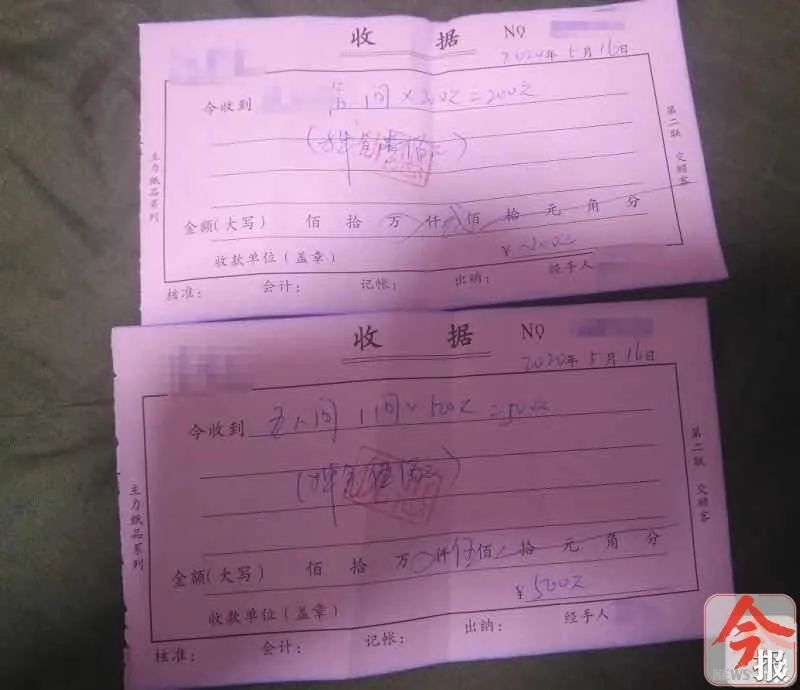 收 据 NO
2020年5月16日
今收到 间×200元=200元
金额(大写) 佰 拾 万 仟 佰 拾 元 角 分
收款单位(盖章) ￥200元
核准： 会计： 记帐： 出纳： 经手人
主力纸品系列
第二联 交顾客
收 据 NO
2020年5月16日
今收到 五人间 1间×500元=500元
金额(大写) 佰 拾 万 仟伍佰 拾 元 角 分
收款单位(盖章) ￥500元
核准： 会计： 记帐： 出纳： 经手人
主力纸品系列
第二联 交顾客
今报
NEWS